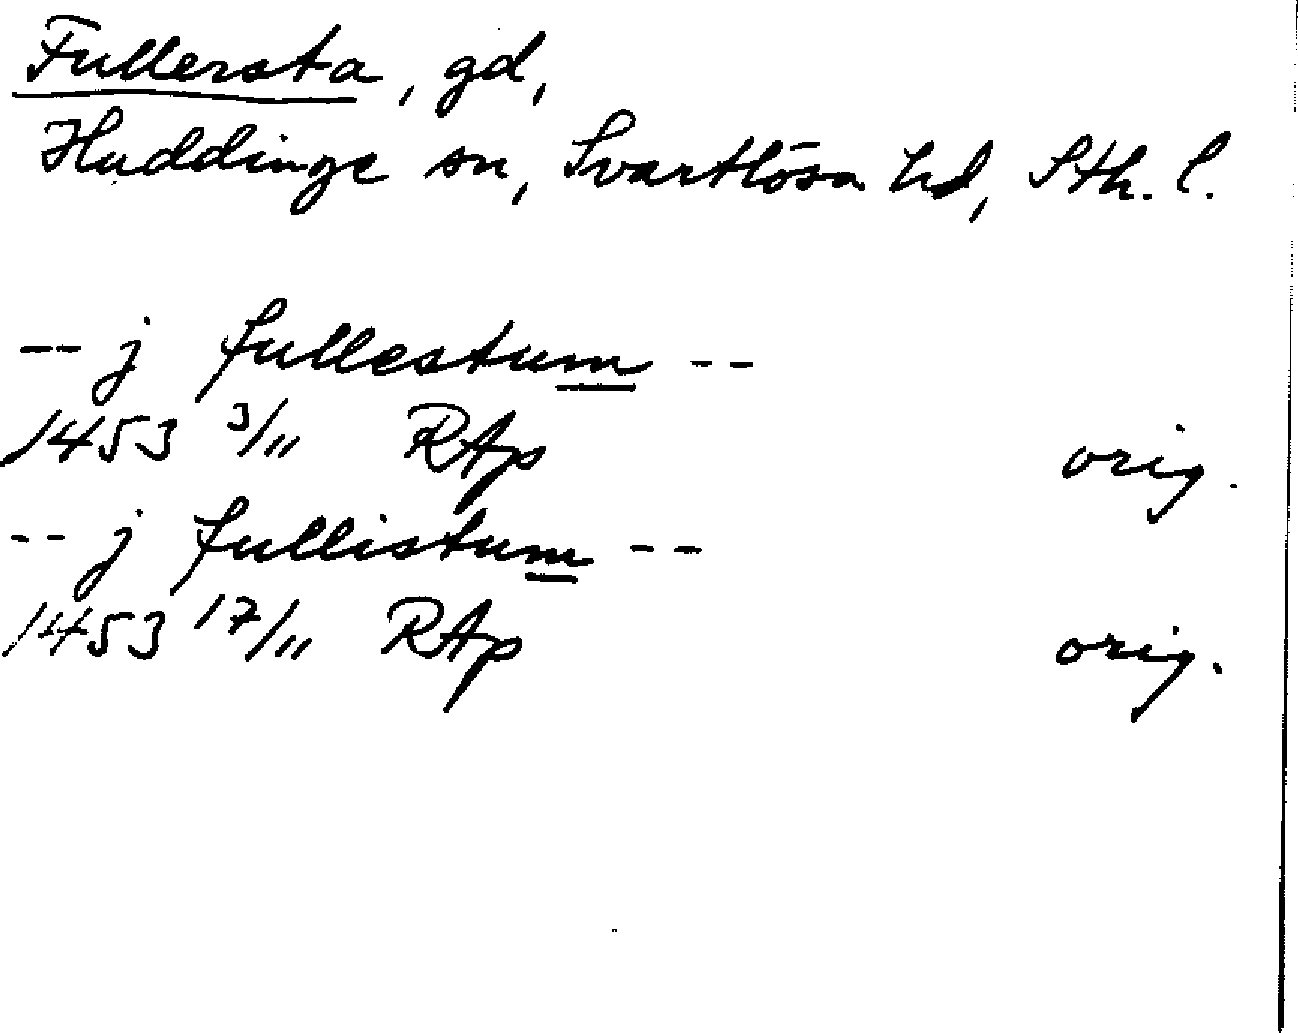 Fullersta, gd,
Huddinge sn, Svartlösa hd, Sth. l.
-- j fullestum --
1453 3/11 RAp orig.
-- j fullistum --
1453 17/11 RAp orig.